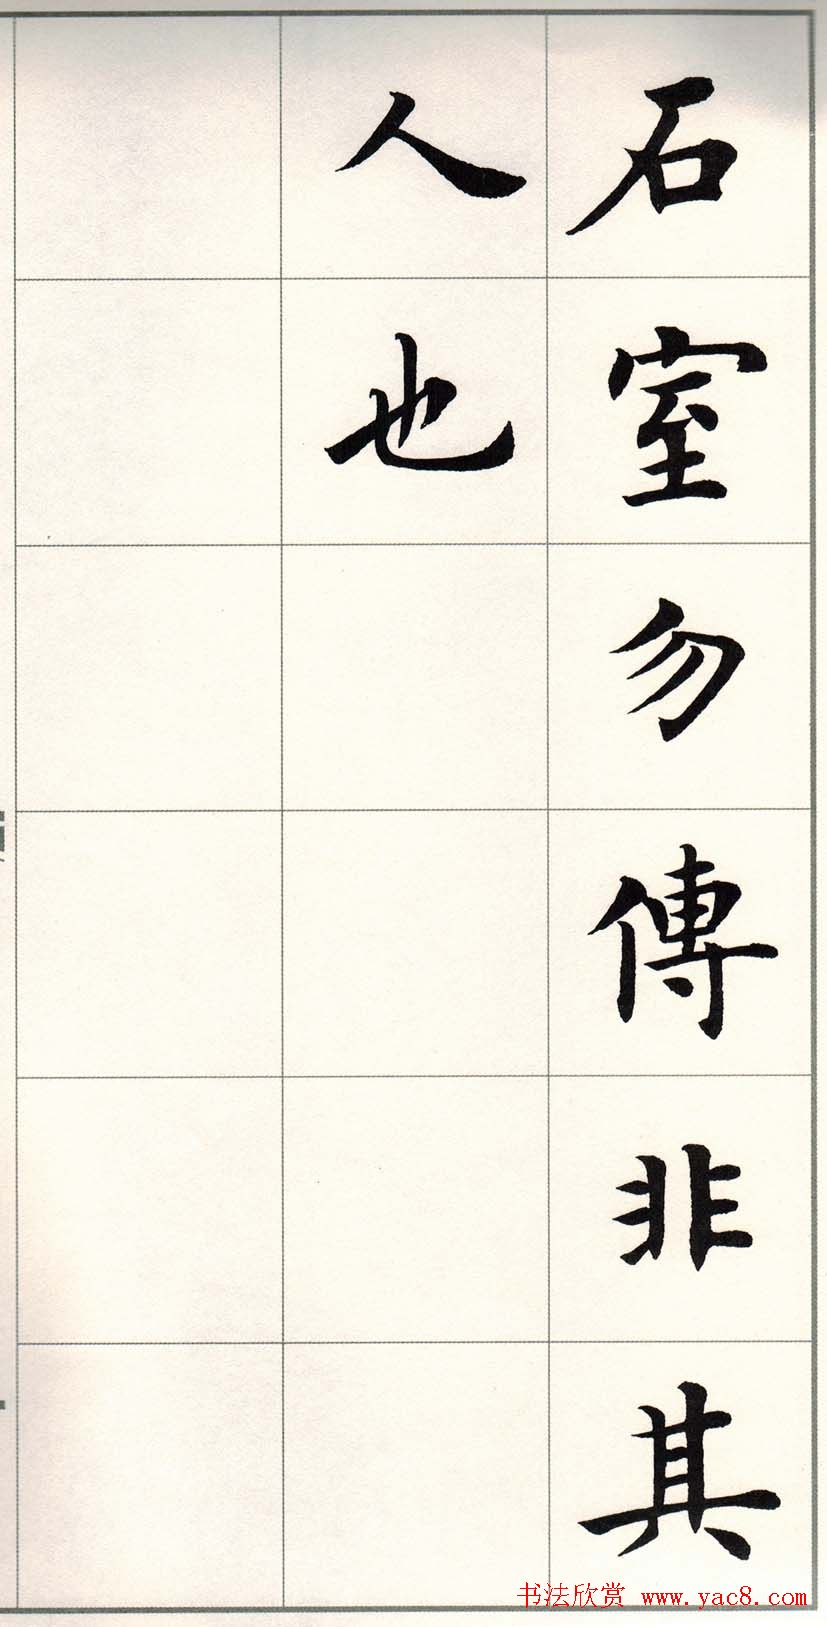 石室勿傳非其
人也
书法欣赏 www.yac8.com